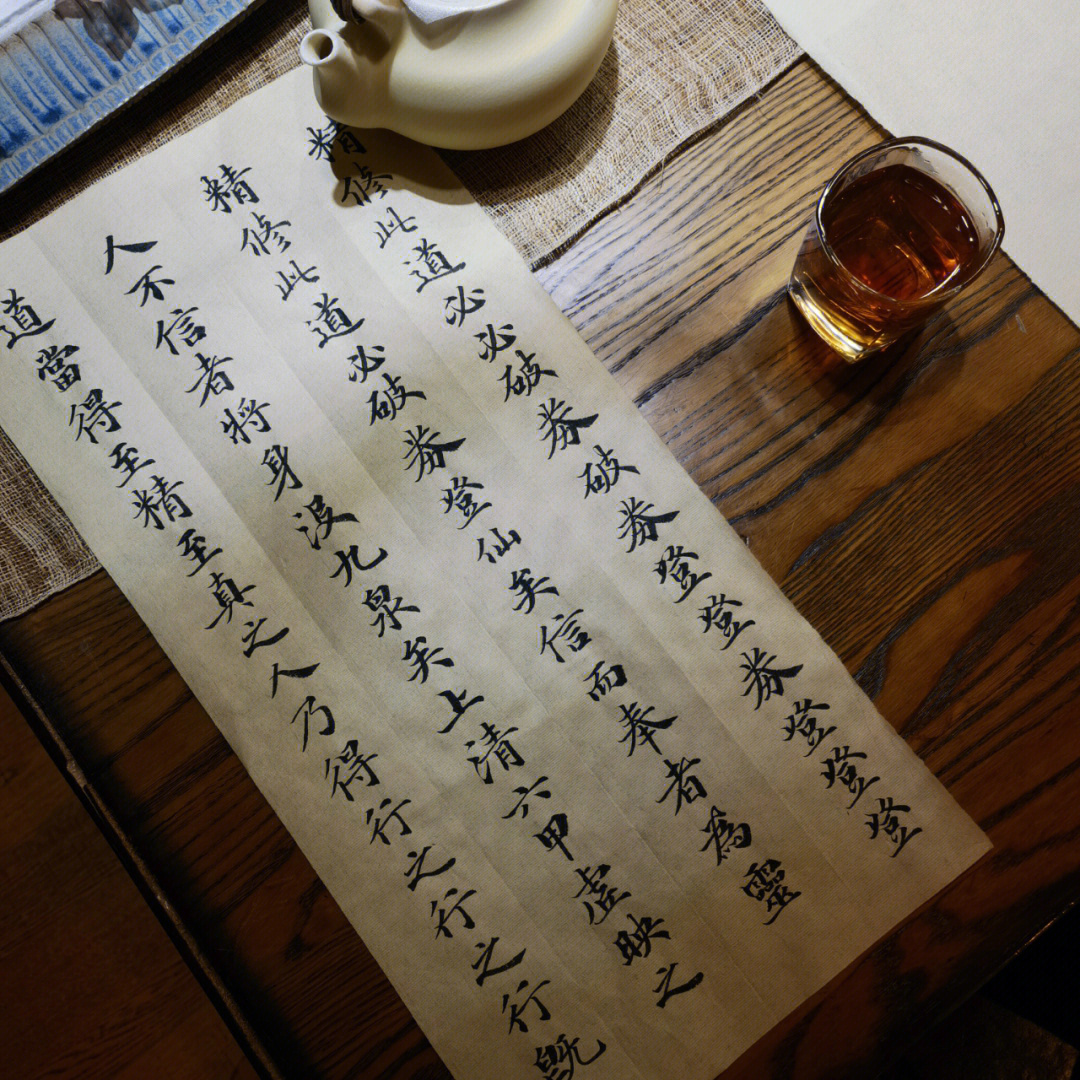 精修此道必必破券破券登登券登登登
精修此道必破券登仙矣信而奉者為靈
人不信者將身没九泉矣上清六甲虛映之
道當得至精至真之人乃得行之行之行既